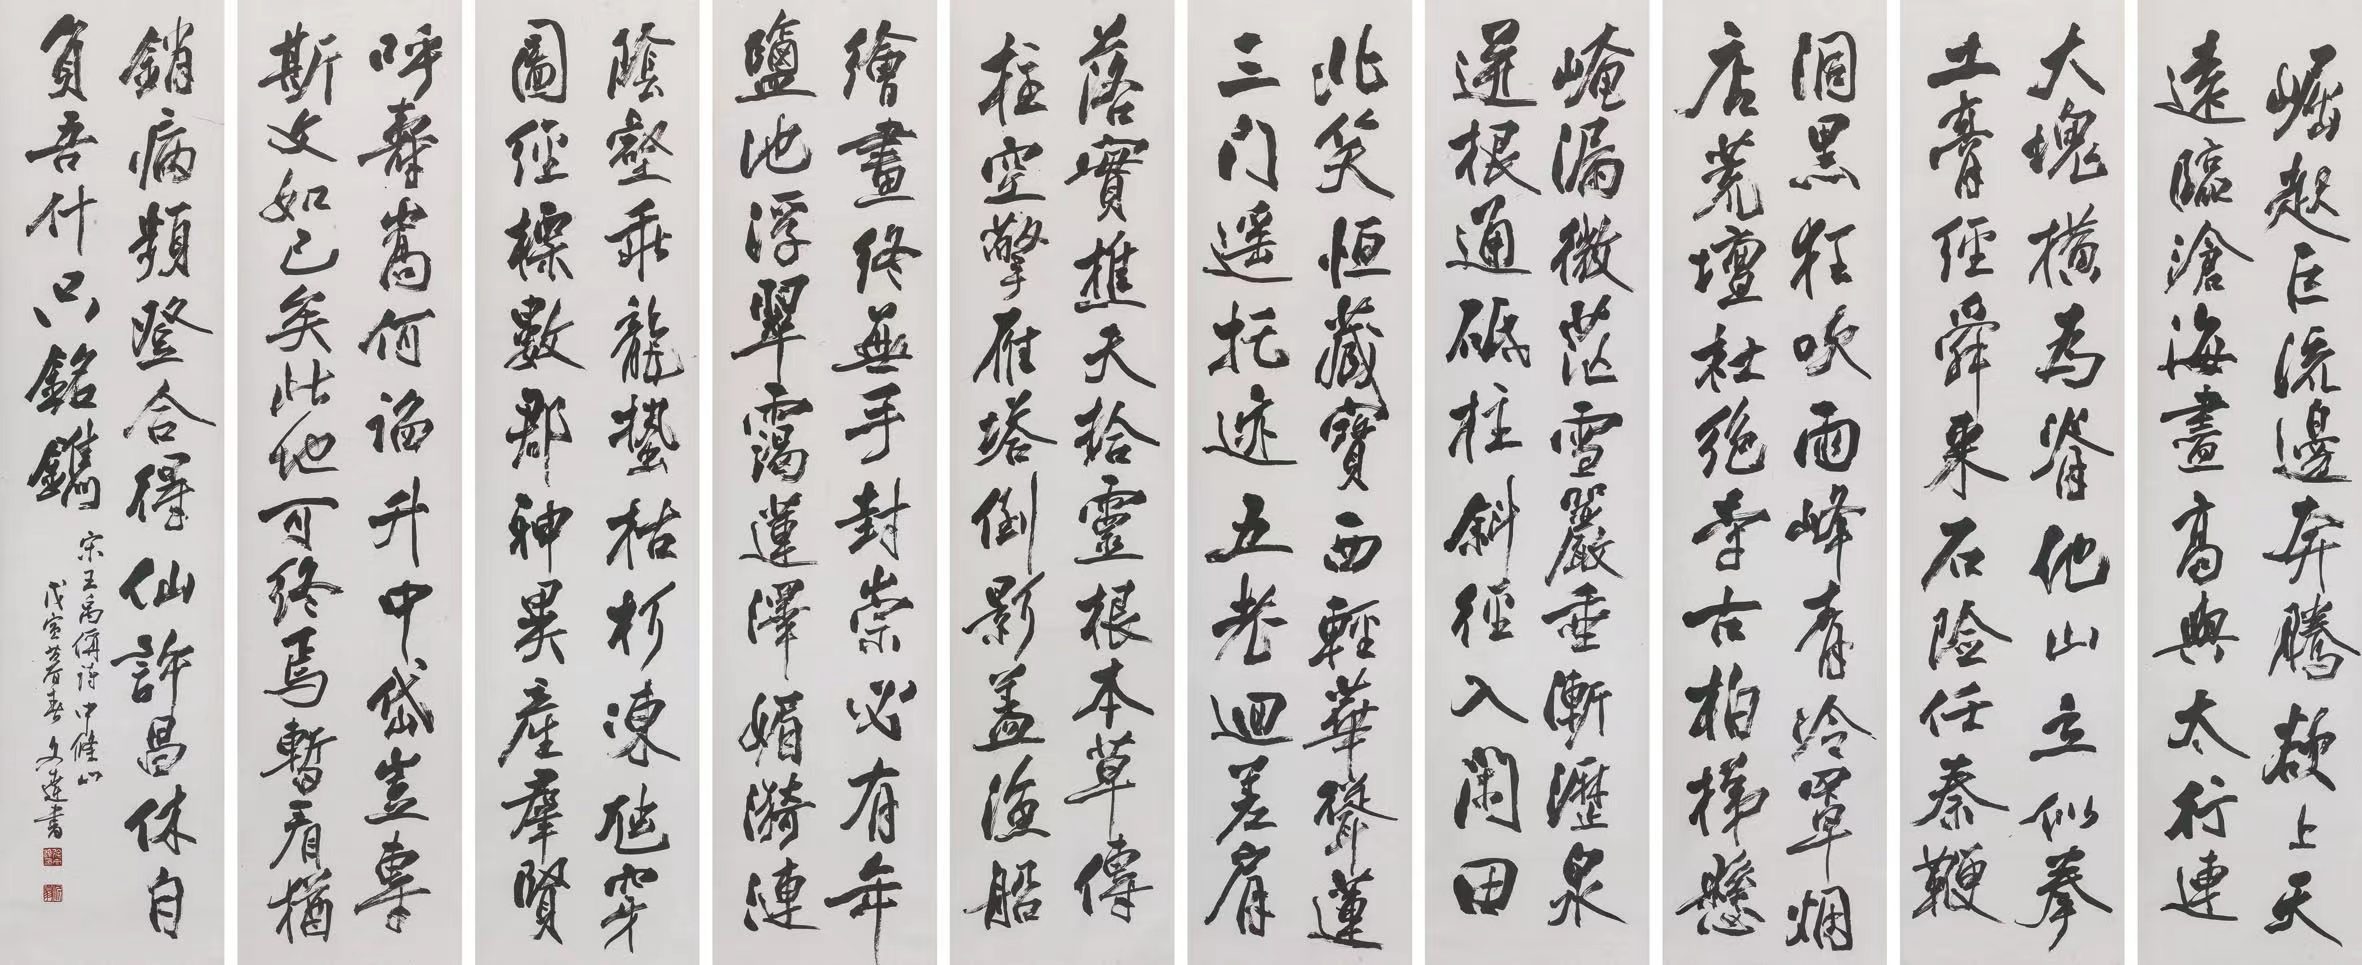 崛起巨流邊奔騰欲上天
遠臨滄海盡高與太行連
大塊橫為脊他山立似拳
土膏經舜耒石險任秦鞭
洞黑狂吹雨峰青冷罩烟
店荒壇杜絕李古柏梯懸
崦漏微茫雪巖垂漸瀝泉
迸根通砥柱斜徑入閑田
北笑恒藏寶西輕華聳蓮
三門遥托迹五老迴差肩
落實樵夫拾靈根本草傳
柱空擎雁塔倒影蓋漁船
繪畫終無手封崇必有年
鹽池浮翠靄蓮澤媚漪漣
陰壑乖龍蟄枯杉凍虺穿
圖經標數郡神異產群賢
呼壽嵩何諂升中岱豈專
斯文如已矣此地可終焉暫看猶
銷病頻登合得仙許昌休自
負吾什只銘鐫
宋王禹偁詩中條山
戊寅暮春文達書